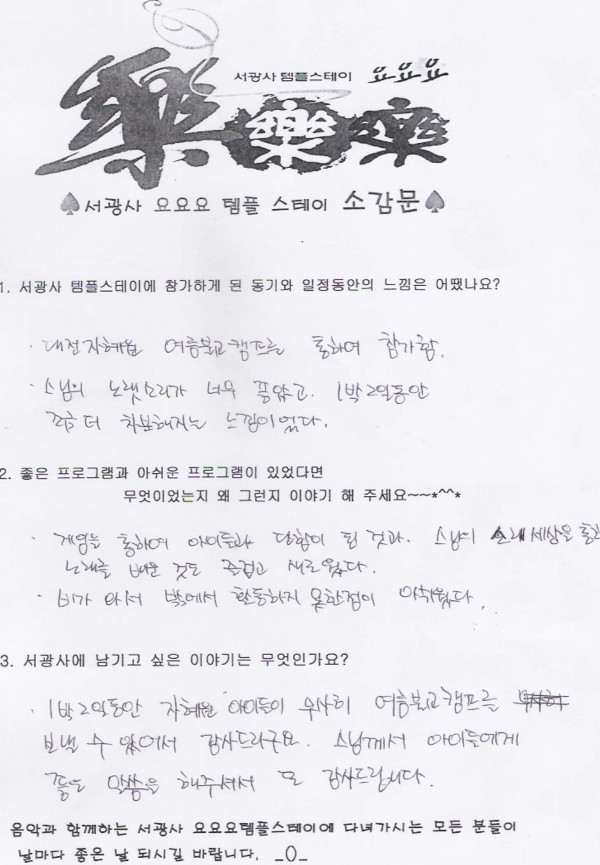 서광사 템플스테이 요요요
樂 樂 樂
서광사 요요요 템플 스테이 소감문
1. 서광사 템플스테이에 참가하게 된 동기와 일정동안의 느낌은 어땠나요?
· 대전지혜원 여름불교캠프를 통하여 참가함.
· 스님의 노랫소리가 너무 좋았고. 1박2일동안
더 차분해지는 느낌이었다.
2. 좋은 프로그램과 아쉬운 프로그램이 있었다면
무엇이었는지 왜 그런지 이야기 해 주세요~~*^^*
· 게임을 통하여 아이들과 단합이 된 것과. 스님의 노래세상을 통한
노래를 배운 것도 즐겁고 새로웠다.
· 비가 와서 밖에서 활동하지 못한점이 아쉬웠다.
3. 서광사에 남기고 싶은 이야기는 무엇인가요?
· 1박2일동안 지혜원 아이들이 무사히 여름불교캠프를
보낼 수 있어서 감사드리구요. 스님께서 아이들에게
좋은 말씀을 해주셔서 또 감사드립니다.
음악과 함께하는 서광사 요요요템플스테이에 다녀가시는 모든 분들이
날마다 좋은 날 되시길 바랍니다. _()_